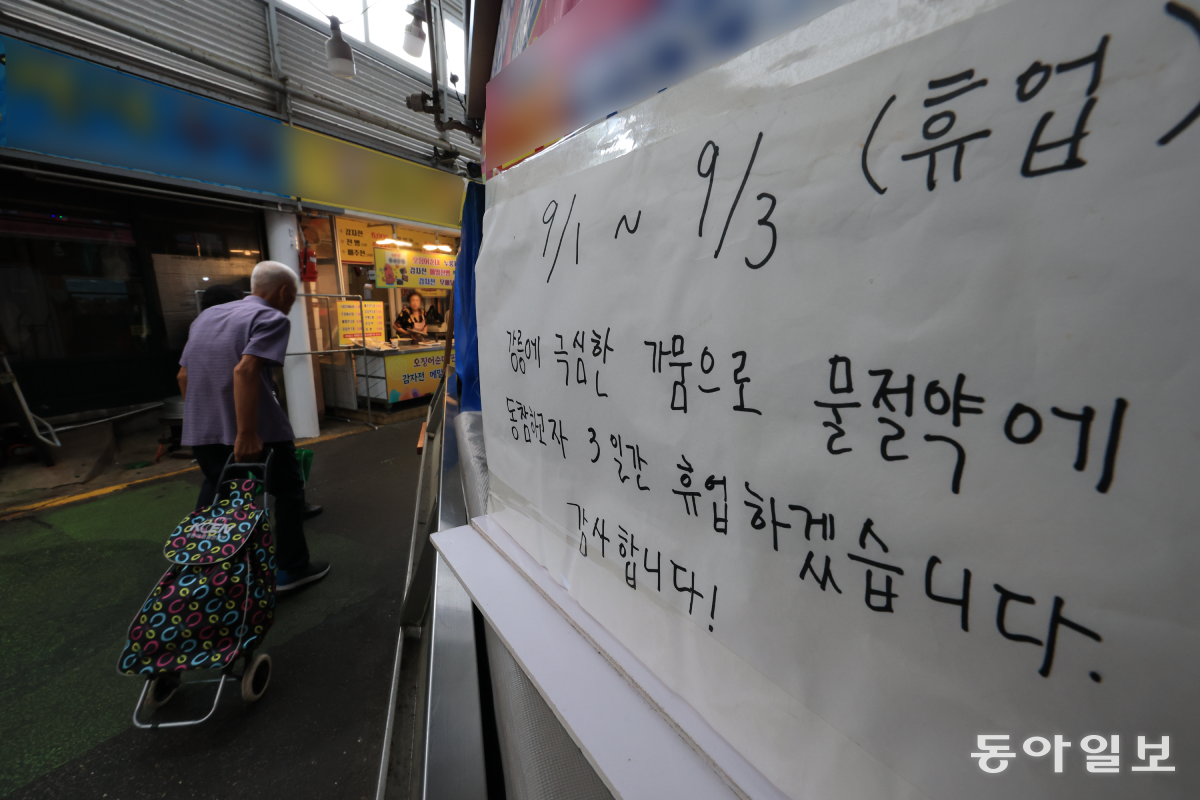 9/1 ~ 9/3 (휴업)
강릉에 극심한 가뭄으로 물절약에
동참하고자 3일간 휴업하겠습니다.
감사합니다!
감자전
오징어순대
감자전
동아일보